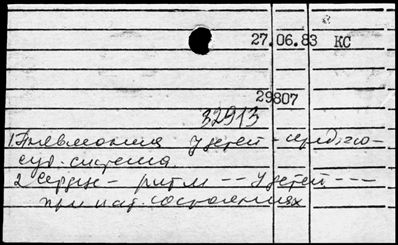 27.06.83 КС
29807
32913
1) Пневмония у детей - сердечно-
суд. система
2) Сердце - ритм -- у детей ---
при пат. состояниях